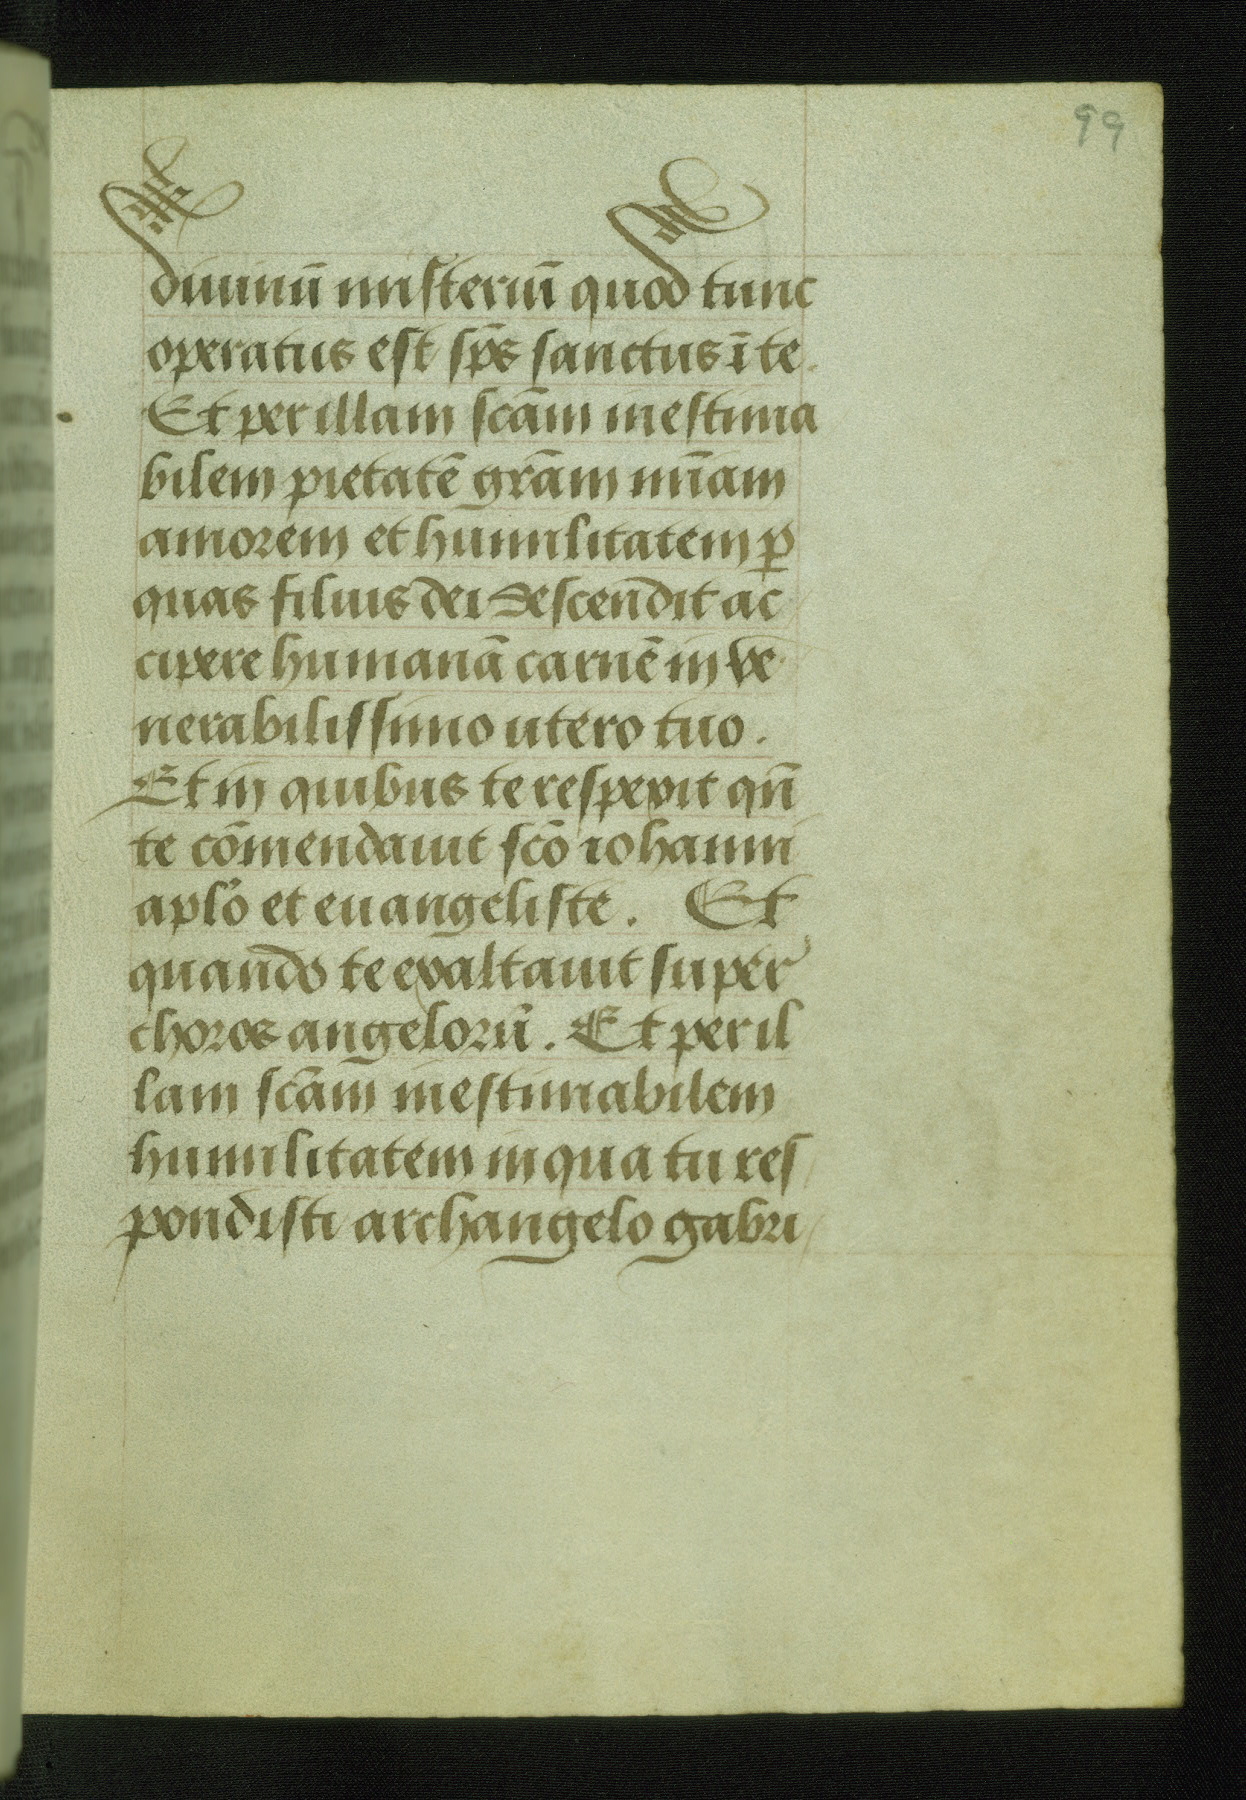 99
diuinū misteriū quod tunc
operatus est sp̄s sanctus ī te.
Et per illam scām inestima
bilem pietatē grām mīam
amorem et humilitatem ꝑ
quas filius dei descendit ac
cipere humanā carnē in ve
nerabilissimo utero tuo.
Et in quibus te respexit qn̄
te cōmendauit scō iohanni
aplō et euangeliste. Et
quando te exaltauit super
choros angelorū. Et per il
lam scām inestimabilem
humilitatem in qua tu res
pondisti archangelo gabri